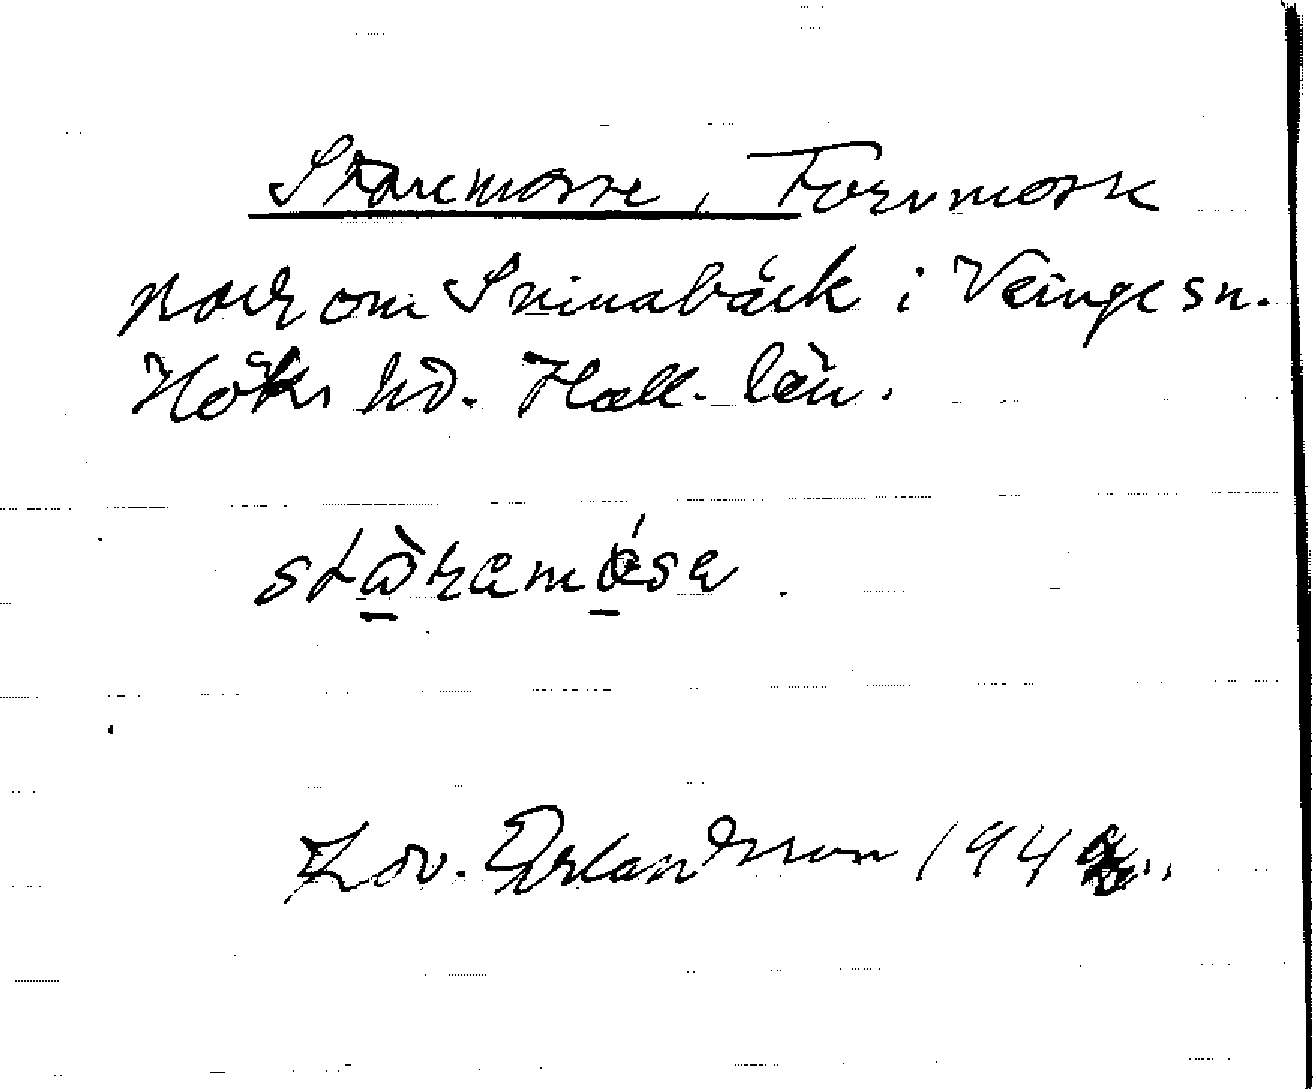 Staremosse, Torvmosse
norr om Svinabäck i Veinge sn.
Höks hd. Hall. län.
stàramósa
Edv. Erlandsson 194